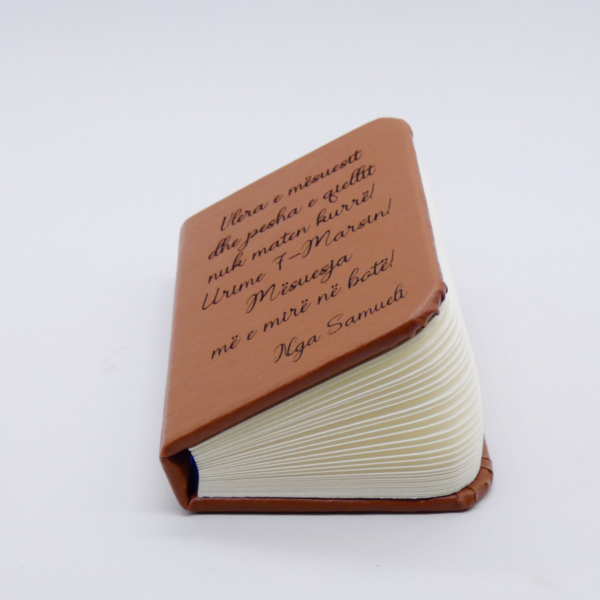 Vlera e mësuesit
dhe pesha e qiellit
nuk maten kurrë!
Urime 7-Marsin!
Mësuesja
më e mirë në botë!
Nga Samueli